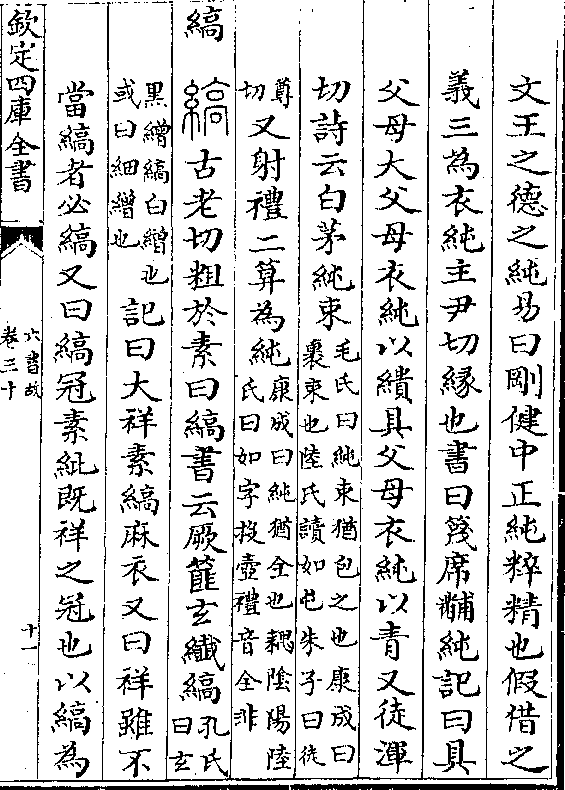 文王之德之純易曰剛健中正純粹精也假借之
義三為衣純主尹切緣也書曰篾席黼純記曰具
父母大父母衣純以繢具父母衣純以青又徒渾
切詩云白茅純束毛氏曰純束猶包之也康成曰
裹束也陸氏讀如屯朱子曰徒
尊切又射禮二算為純康成曰純猶全也耦陰陽陸
氏曰如字投壺禮音全非
縞
縞古老切粗於素曰縞書云厥篚玄纖縞孔氏曰玄
黑繒縞白繒也
或曰細繒也記曰大祥素縞麻衣又曰祥雖不
當縞者必縞又曰縞冠素紕既祥之冠也以縞為
欽定四庫全書
六書故
卷三十
十一